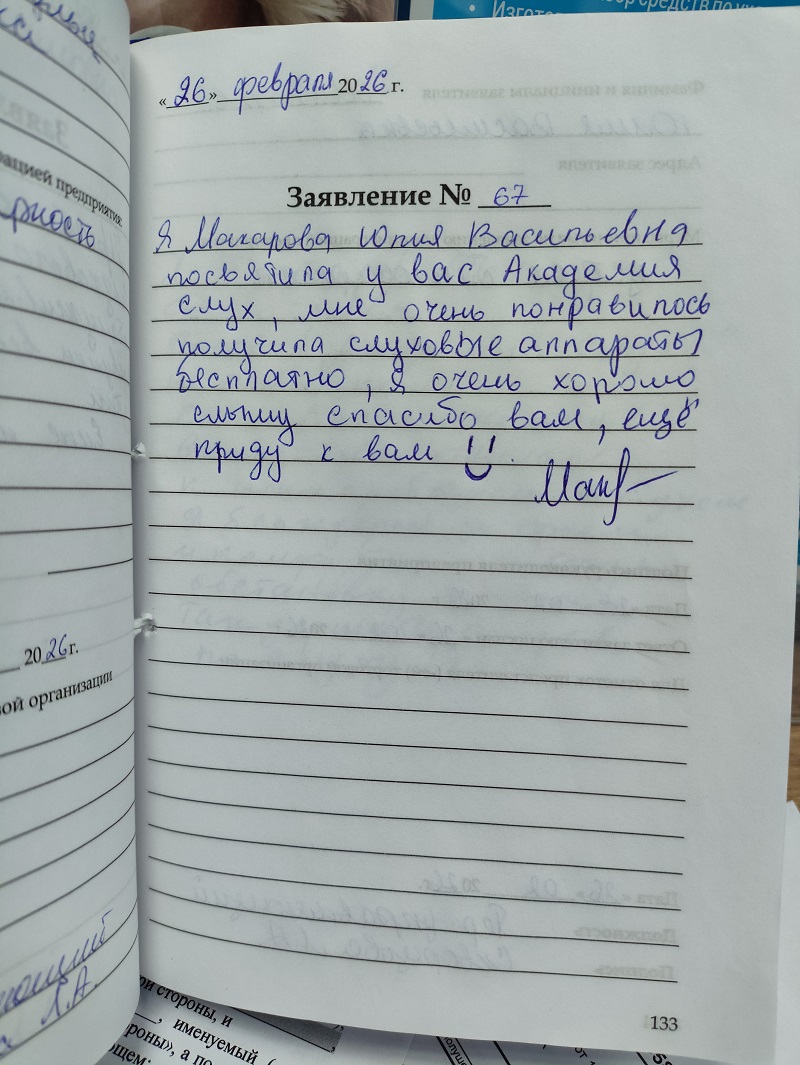 Изготов
бор средств по ухо
«26» февраля 2026 г.
Заявление № 67
Я Макарова Юлия Васильевна
посвятила у вас Академия
слух, мне очень понравилось
получила слуховые аппараты
бесплатно, я очень хорошо
слышу спасибо вам, ещё
приду к вам
рацией предприятия:
рность
2026 г.
ой организации
Л.А.
ри стороны, и
, именуемый (
роны», а по
ющем:
133